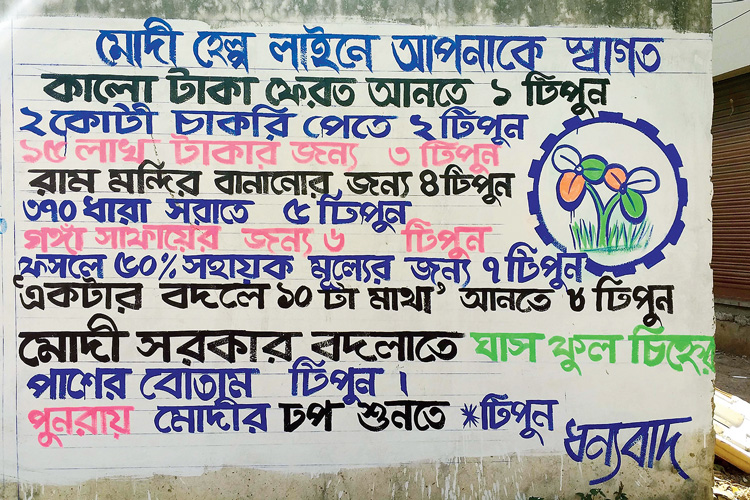 মোদী হেল্প লাইনে আপনাকে স্বাগত
কালো টাকা ফেরত আনতে ১ টিপুন
২ কোটী চাকরি পেতে ২ টিপুন
১৫ লাখ টাকার জন্য ৩ টিপুন
রাম মন্দির বানানোর জন্য ৪ টিপুন
৩৭০ ধারা সরাতে ৫ টিপুন
গঙ্গা সাফায়ের জন্য ৬ টিপুন
ফসলে ৫০% সহায়ক মূল্যের জন্য ৭ টিপুন
'একটার বদলে ১০ টা মাথা' আনতে ৮ টিপুন
মোদী সরকার বদলাতে ঘাস ফুল চিহ্নের
পাশের বোতাম টিপুন ।
পুনরায় মোদীর ঢপ শুনতে *টিপুন
ধন্যবাদ